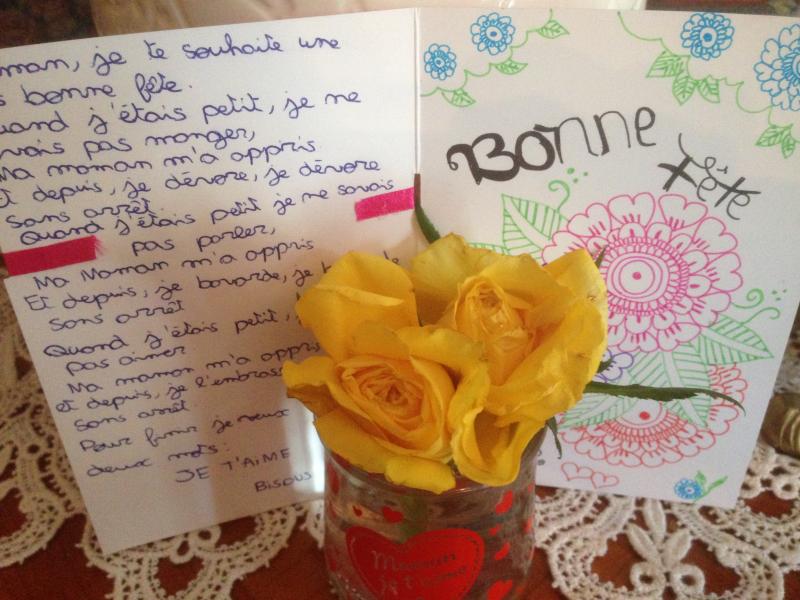 man, je te souhaite une
bonne fête.
uand j'étais petit, je ne
vais pas manger,
Ma maman m'a appris
Et depuis, je dévore, je dévore
sans arrêt.
Quand j'étais petit je ne savais
pas parler,
Ma Maman m'a appris
Et depuis, je bavarde, je b
sans arrêt
Quand j'étais petit,
pas aimer
Ma maman m'a appris
et depuis, je l'embras
sans arrêt
Pour finir je veux
deux mots:
JE T'AIME
Bisous
BONNE
Fête
Maman
je t'aime